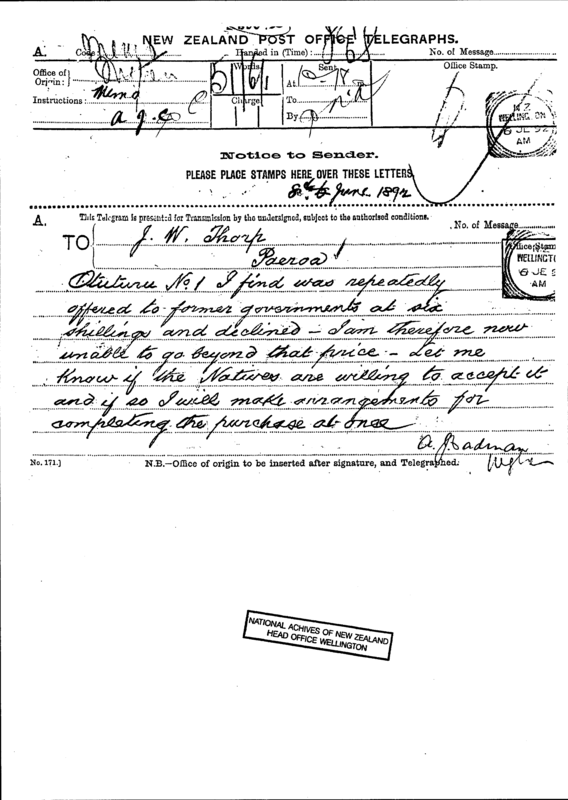 NEW ZEALAND POST OFFICE TELEGRAPHS.
A. Code Handed in (Time): No. of Message
Office of Origin: Words. Sent. Office Stamp.
Instructions: Memo Charge At
To
By
WELLINGTON
6 JE 92
AM
Notice to Sender.
PLEASE PLACE STAMPS HERE OVER THESE LETTERS
June 1892
A. This Telegram is presented for Transmission by the undersigned, subject to the authorised conditions.
No. of Message
TO J. W. Thorp
Paeroa
Office Stamp
WELLINGTO
6 JE 9
AM
Otuturu No 1 I find was repeatedly
offered to former governments at six
shillings and declined - I am therefore now
unable to go beyond that price - Let me
Know if the Natives are willing to accept it
and if so I will make arrangements for
completing the purchase at once
A. J. Cadman
No. 171.] N.B.—Office of origin to be inserted after signature, and Telegraphed.
NATIONAL ACHIVES OF NEW ZEALAND
HEAD OFFICE WELLINGTON